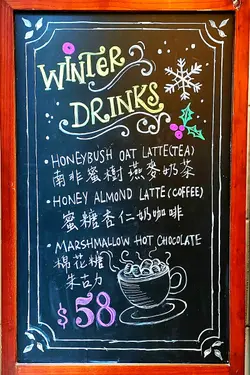 WINTER
DRINKS
• HONEYBUSH OAT LATTE(TEA)
南非蜜樹燕麥奶茶
• HONEY ALMOND LATTE(COFFEE)
蜜糖杏仁奶咖啡
• MARSHMALLOW HOT CHOCOLATE
棉花糖
朱古力
$58